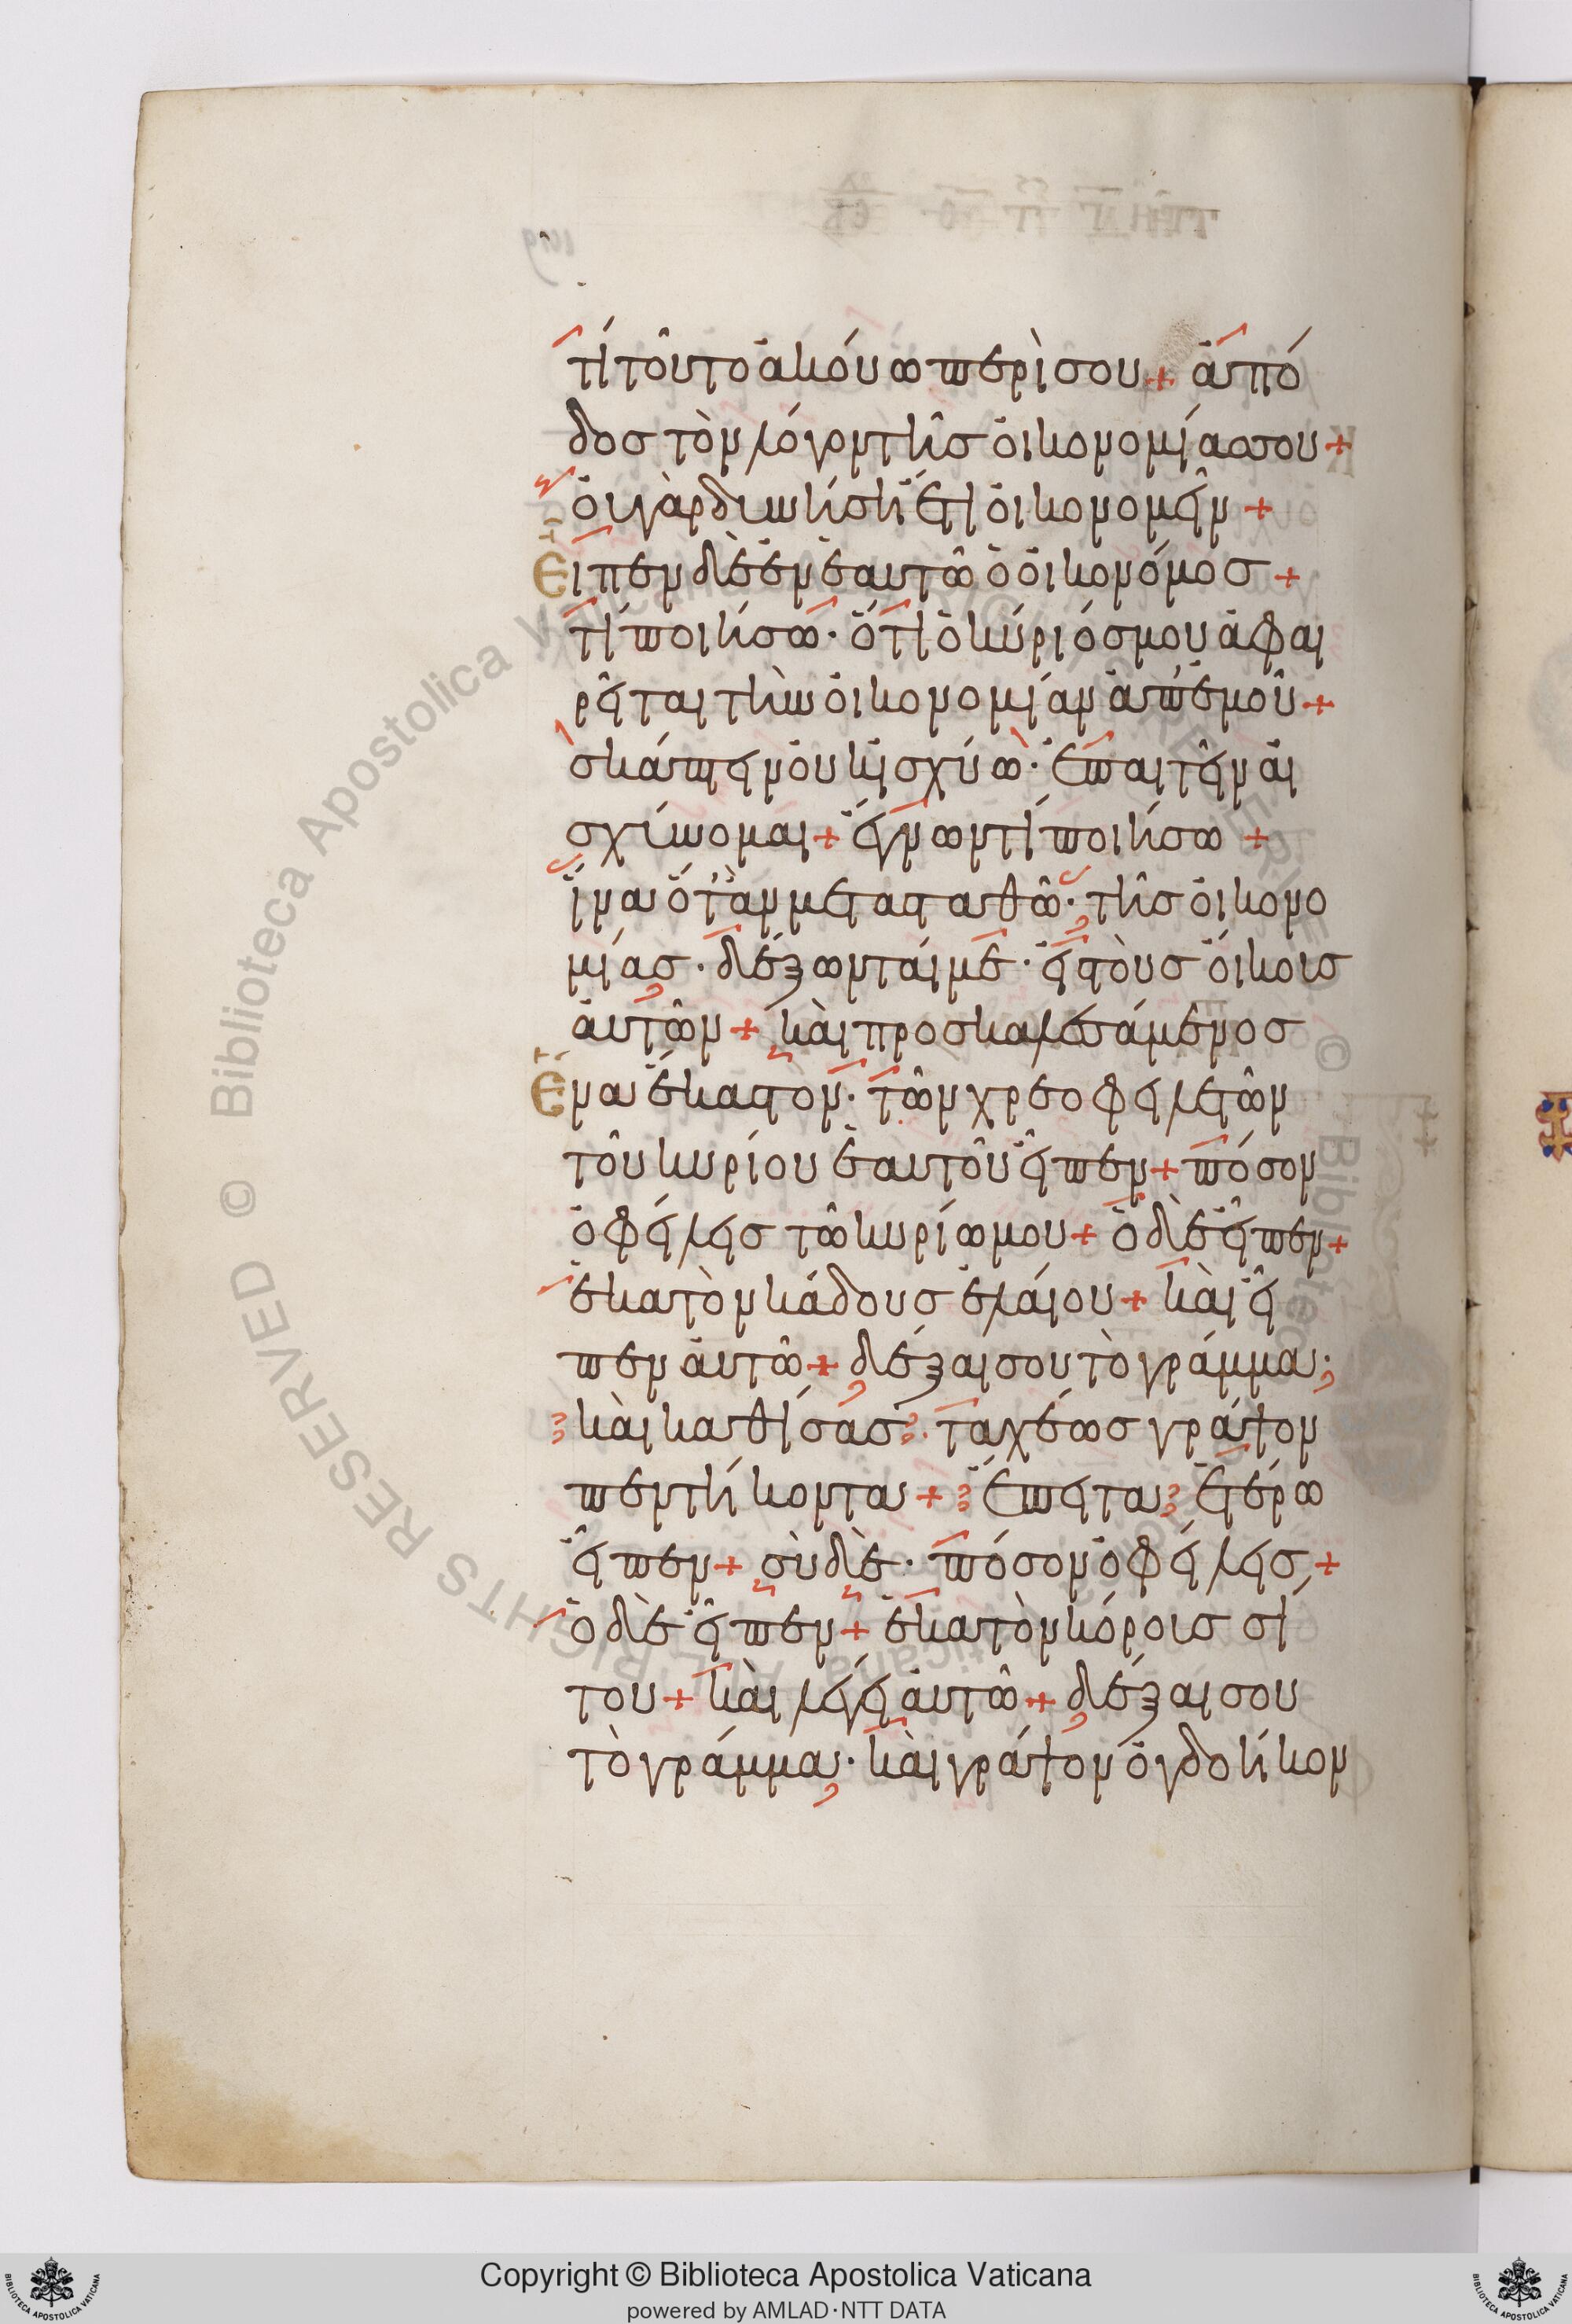 τί τοῦτο ἀκούω περὶ σου + ἀπό
δος τὸν λόγον τῆς οἰκονομίας σου +
ὀυ γὰρ δυνήση ἔτι οἰκονομεῖν +
Εἶπεν δὲ ἐν ἑαυτῶ ὁ οἰκονόμος +
τί ποιήσω· ὅτι ὁ κύριός μου ἀφαι
ρεῖται τὴν οἰκονομίαν ἀπ' ἐμοῦ +
σκάπτειν ὀυκ ἰσχύω· ἐπαιτεῖν αἰ
σχύνομαι + ἔγνων τί ποιήσω +
ἵνα ὅτ' ἂν μετασταθῶ· τῆς οἰκονο
μίας· δέξωνταί με· εἰς τοὺς ὄικους
ἀυτῶν + καὶ προσκαλεσάμενος
Ἕνα ἕκαστον· τῶν χρεοφειλετῶν
τοῦ κυρίου ἑαυτοῦ εἶπεν + πόσον
ὀφείλεις τῶ κυρίω μου + ὁ δὲ εἶπεν +
ἑκατὸν κάδους ἐλαίου + καὶ εἶ
πεν ἀυτῶ + δέξαι σου τὸ γράμμα·
καὶ καθίσας· ταχέως γράψον
πεντήκοντα + ἔπειτα ἑτέρω
εἶπεν + σὺ δὲ· πόσον ὀφείλεις +
ὁ δὲ εἶπεν + ἑκατὸν κόρους σί
του + καὶ λέγει ἀυτῶ + δέξαι σου
τὸ γράμμα· καὶ γράψον ὀγδοήκον
© Biblioteca Apostolica Vaticana ALL RIGHTS RESERVED
Copyright © Biblioteca Apostolica Vaticana
powered by AMLAD·NTT DATA
BIBLIOTECA APOSTOLICA VATICANA
BIBLIOTECA APOSTOLICA VATICANA